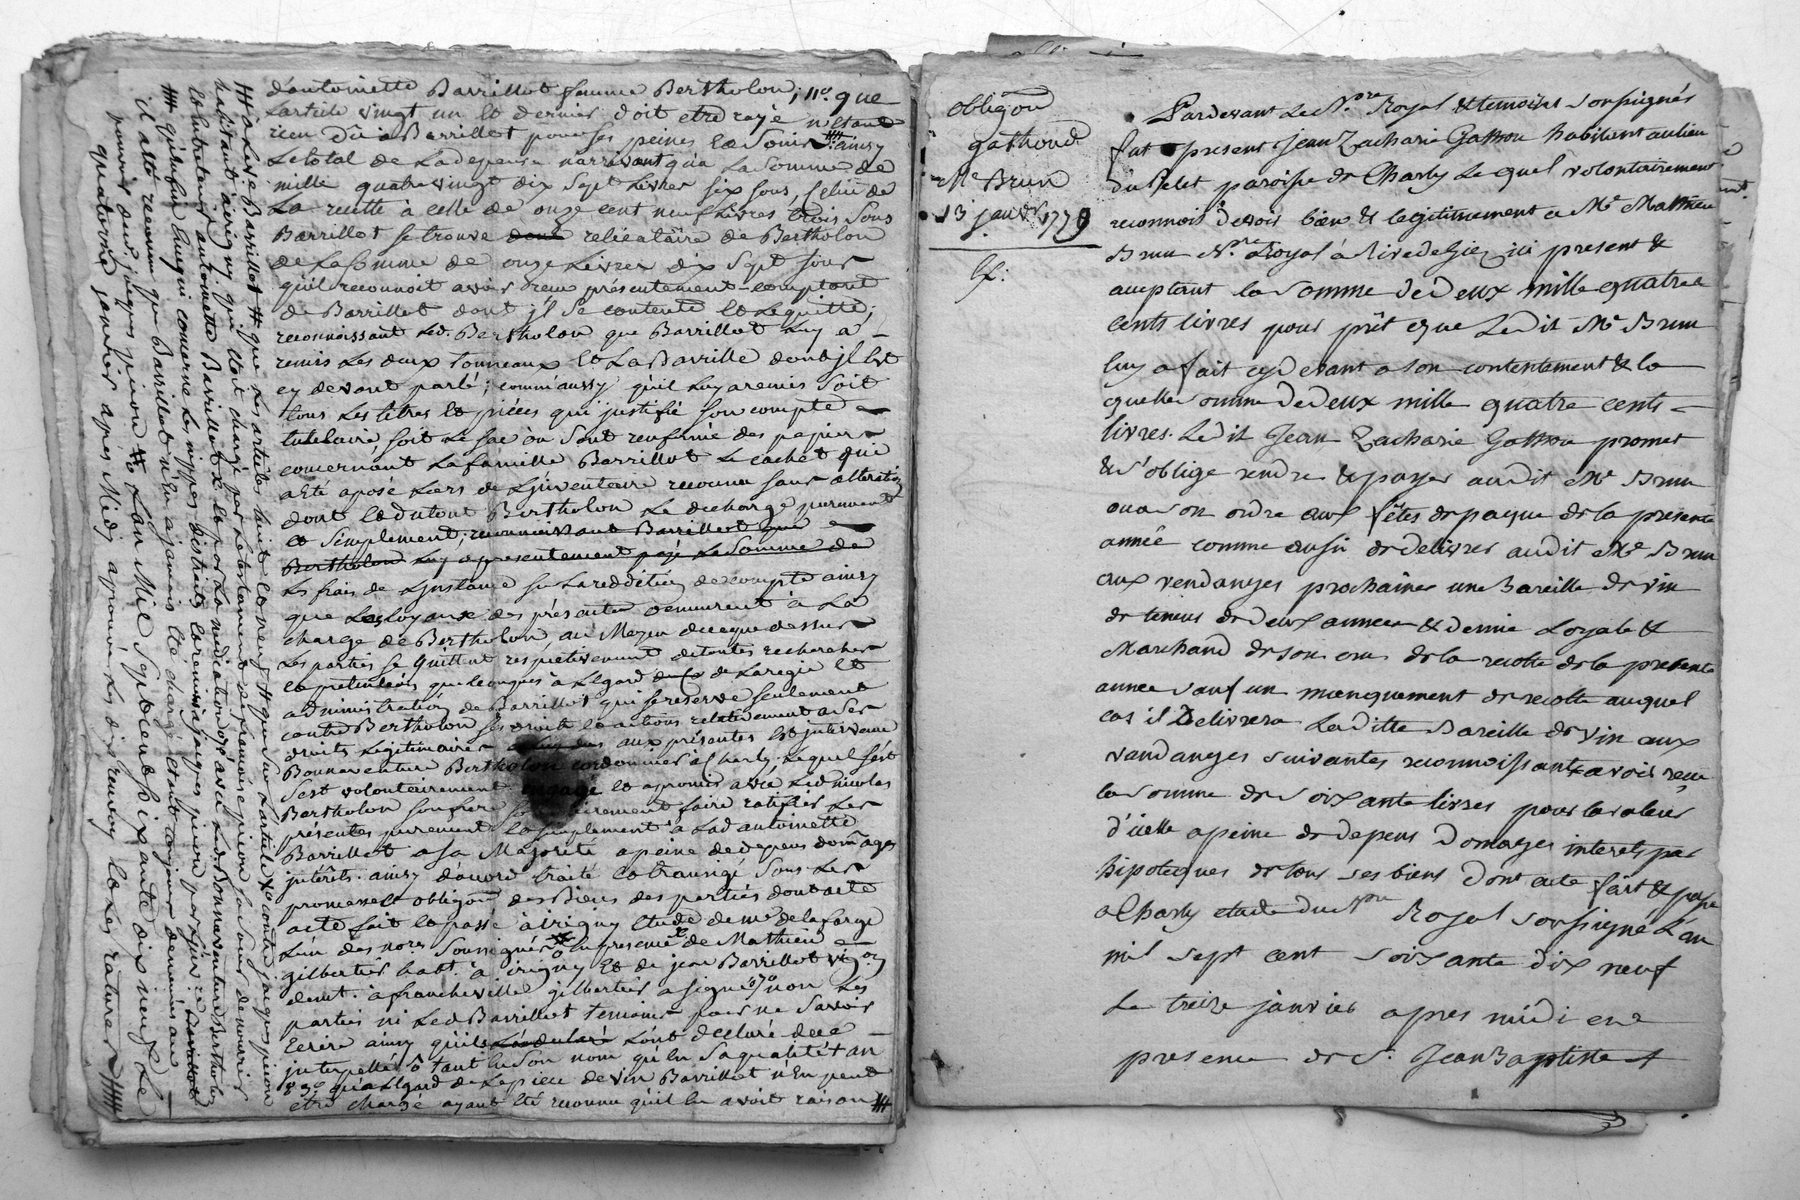 d'antoinette Barrillot femme Bertholon; 11.o que
L'article vingt un et dernier doit etre rayé n'etant
rien dû à Barrillot pour ses peines et soins ainsy
Le total de La depense n'arrivant qu'a La somme de
mille quatrevingt dix sept Livres six sous, Celui de
La recette à celle de onze cent neuf Livres trois sous
Barrillot se trouve donc reliquataire de Bertholon
de La somme de onze Livres dix sept sous
qu'il reconnoit avoir reçu présentement comptant
de Barrillot dont il se contente et Le quitte;
reconnoissant Led. Bertholon que Barrillot Luy a
remis Les deux tonneaux et La Barrille dont il Est
cy devant parlé; comm'aussy qu'il Luy a remis soit
tous Les titres et piéces qui justifie son compte
tutelaire soit Le sac où sont renfermé des papiers
concernant La famille Barrillot Le cachet que
a eté aposé Lors de L'inventaire reconnu sans alteration
dont Et du tout Bertholon Le decharge purement
et simplement; reconnoissant Barrillot que
Bertholon Luy a presentement payé La somme de
Les frais de L'instance sur La reddition de compte ainsy
que Les Loyaux des présentes demeurent à La
charge de Bertholon, au Moyen de ce que dessus
Les parties se quittent respectivement de toutes recherches
et pretentions quelconques à L'egard de La regie et
administration de Barrillot qui se reserve seulement
contre Bertholon ses droits et actions relativement a ses
droits Legitimaires aux présentes Est intervenu
Bonnaventure Bertholon cordonnier à Charly Lequel s'est
s'est volontairement engagé et a promis avec Led. nicolas
Bertholon son frere solidairement faire ratifier Les
présentes purement et simplement a Lad. antoinette
Barrillot a sa Majorité a peine de depens dommages
intérêts. ainsy d'acord traité et transigé sous Les
promesses obligõn des Biens des parties dont acte
acte fait et passé à irigny Etude de me delaforge
L'un des nores soussignés En presence de Mathieu
gilbertier habt. à irigny Et de jean Barrillot vigon
demt. à francheville gilbertier a signé non Les
parties ni Led Barrillot temoins pour ne savoir
Ecrire ainsy qu'ils L'ont declaré de ce
interpellés tant En son nom qu'En sa qualité tan
qu'a L'egard de La piece de vin Barrillot n'En peut
etre chargé ayant eté reconnu qu'il En avoit raison
# à Lx. Barrillot # que Les articles huit et neuf # que sur L'article Xe contre jacques pinon
habitant à irigny qui etoit chargé par Le testament de françoise pinon sa soeur de nourrir
et entretenir antoinette Barrillot
# qu'enfin En ce qui concerne Les nippes
il a eté reconnu que Barrillot n'En a jamais eté chargé etant toujours demeurés au
pouvoir dud. jacques pinon # L'an Mil Sept cent soixante dix neuf Le
quatorze janvier après Midy approuvé Les dix renvoy et les ratures
obligõn
gathond
Me Brun
13 janvr. 1779
Pardevant Le Nre Royal & temoins soussignés
fut present Jean Zacharie Gathon habitant au lieu
du Pelet paroisse de Charly Lequel volontairement
reconnoit devoir bien & legitimement a Me Mathieu
Brun Nre Royal à Rivedegiez ici present &
acceptant la somme de Deux mille quatre
cents livres pour prêt que Ledit Me Brun
luy a fait cy devant a son contentement & la
quelle somme de Deux mille quatre cents
livres. Ledit Jean Zacharie Gathon promet
& s'oblige rendre & payer audit Me Brun
ou a son ordre aux fêtes de paque de la presente
année comme aussi de delivrer audit Me Brun
aux vendanges prochaines une Bareille de vin
de tenus de deux annees & demie Loyale &
Marchand de son cru de la recolte de la presente
annee sauf un manquement de recolte auquel
cas il Delivrera Laditte Bareille de vin aux
vendanges suivantes reconnoissant avoir reçu
la somme de soixante livres pour la valeur
d'icelle a peine de depens Domages interets par
hipoteques de tous ses biens Dont acte fait & passé
a Charly etude du Nre Royal soussigné L'an
mil sept cent soixante dix neuf
Le treize janvier apres midi en
presence de Sr. Jean Baptiste